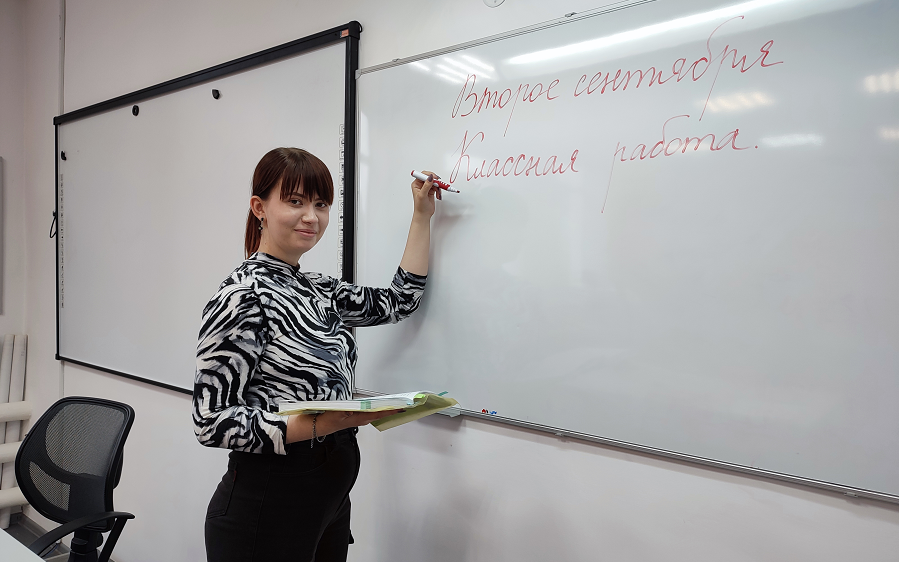 Второе сентября
Классная работа.